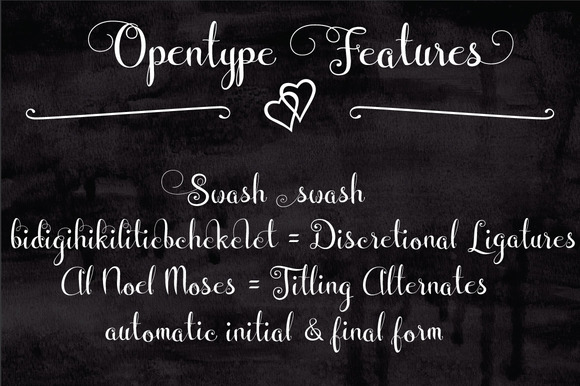 Opentype Features
Swash swash
bidigihikilitiebchckelet = Discretional Ligatures
Al Noel Moses = Titling Alternates
automatic initial & final form